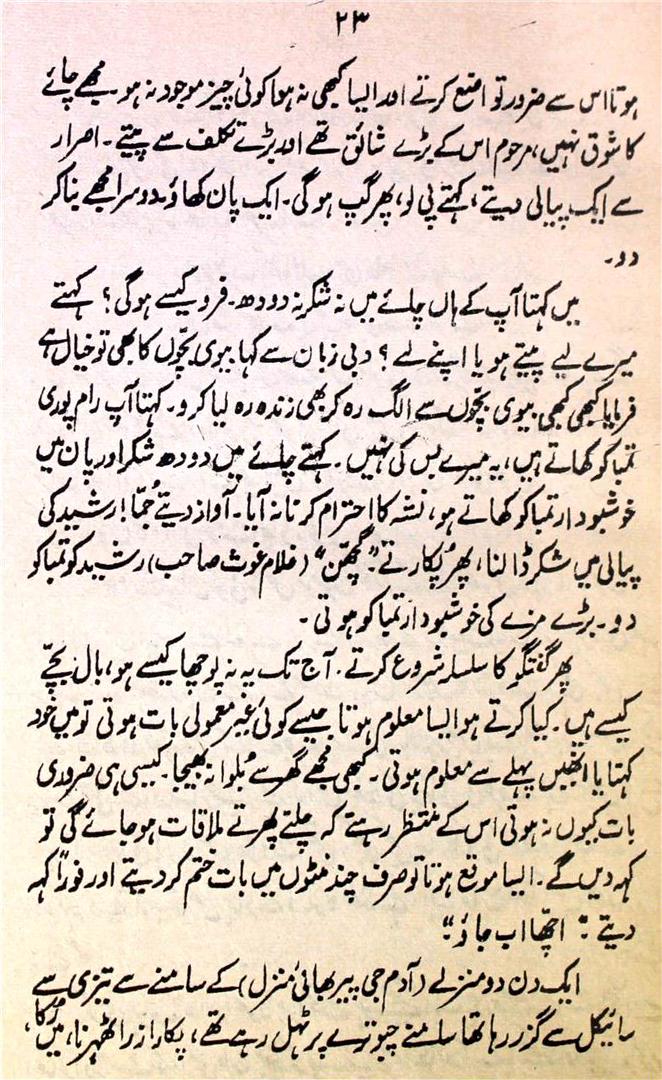 ۲۳
ہوتا اس سے ضرور تواضع کرتے اور ایسا کبھی نہ ہوا کوئی چیز موجود نہ ہو مجھے چائے
کا شوق نہیں، مرحوم اس کے بڑے شائق تھے اور بڑے تکلف سے پیتے۔ اصرار
سے ایک پیالی دیتے، کہتے پی لو، پھر گپ ہوگی۔ ایک پان کھاؤ۔ دوسرا مجھے بناکر
دو۔
میں کہتا آپ کے ہاں چائے میں نہ شکر نہ دودھ۔ فرو کیسے ہوگی؟ کہتے
میرے لیے پیتے ہو یا اپنے لیے؟ دبی زبان سے کہا بیوی بچّوں کا بھی تو خیال ہے
فرمایا کبھی کبھی بیوی بچّوں سے الگ رہ کر بھی زندہ رہ لیا کرو۔ کہتا آپ رام پوری
تمباکو کھاتے ہیں، یہ میرے بس کی نہیں۔ کہتے چائے میں دودھ شکر اور پان میں
خوشبودار تمباکو کھاتے ہو، نشہ کا احترام کرنا نہ آیا۔ آواز دیتے جُمّا! رشید کی
پیالی میں شکر ڈالنا، پھر پُکارتے۔ "گھِمّن" (غلام غوث صاحب) رشید کو تمباکو
دو۔ بڑے مزے کی خوشبودار تمباکو ہوتی۔
پھر گفتگو کا سلسلہ شروع کرتے۔ آج تک یہ نہ پوچھا کیسے ہو، بال بچّے
کیسے ہیں۔ کیا کرتے ہو ایسا معلوم ہوتا جیسے کوئی غیر معمولی بات ہوتی تو میں خود
کہتا یا انھیں پہلے سے معلوم ہوتی۔ کبھی مجھے گھر سے بُلوا نہ بھیجا۔ کیسی ہی ضروری
بات کیوں نہ ہوتی اس کے منتظر رہتے کہ چلتے پھرتے ملاقات ہوجائے گی تو
کہہ دیں گے۔ ایسا موقع ہوتا تو صرف چند منٹوں میں بات ختم کردیتے اور فوراً کہہ
دیتے: "اچّھا اب جاؤ"
ایک دن دو منزلے (آدم جی پیر بھائی منزل) کے سامنے سے تیزی سے
سائیکل سے گزر رہا تھا سامنے چبوترے پر ٹہل رہے تھے، پکارا ذرا ٹھہرنا، میں رُکا،